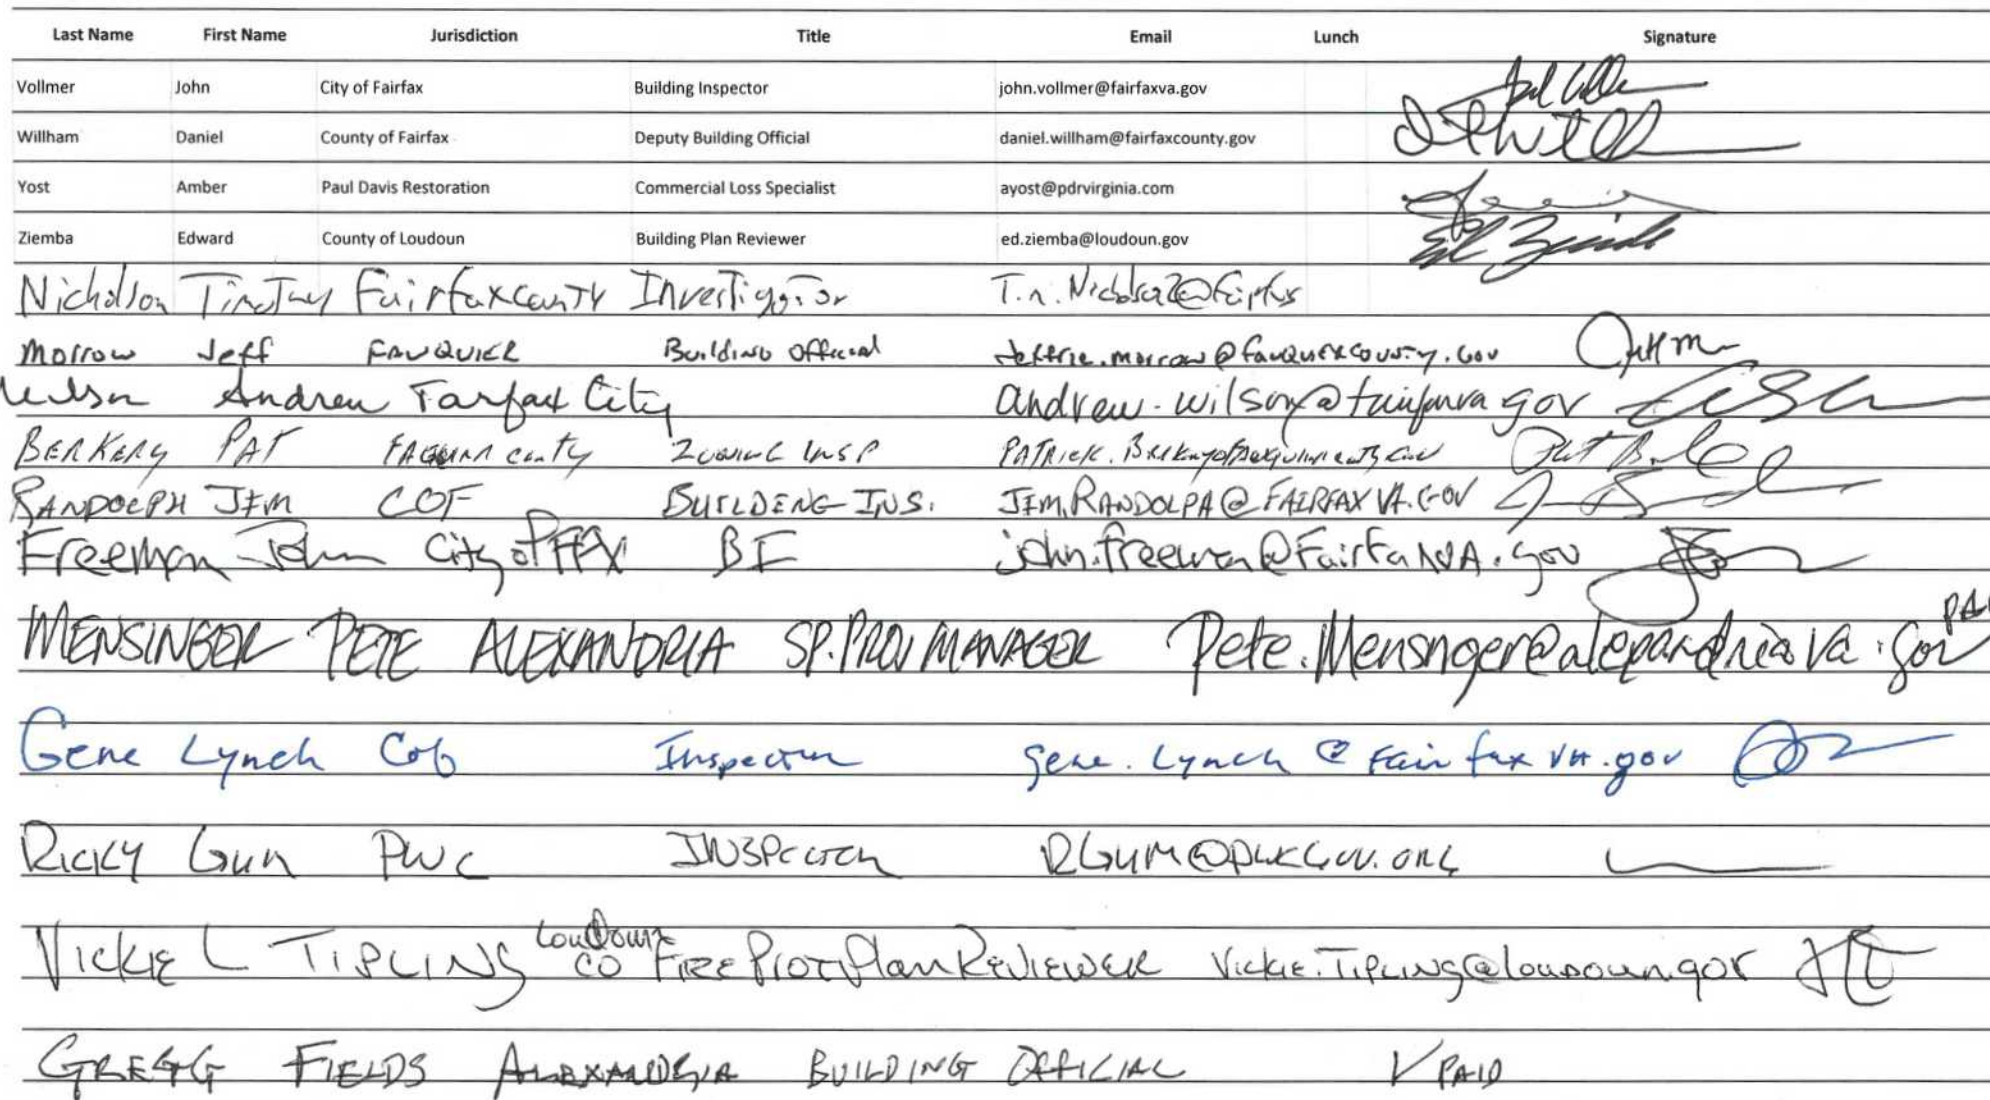 Last Name First Name Jurisdiction Title Email Lunch Signature
Vollmer John City of Fairfax Building Inspector john.vollmer@fairfaxva.gov
Willham Daniel County of Fairfax Deputy Building Official daniel.willham@fairfaxcounty.gov
Yost Amber Paul Davis Restoration Commercial Loss Specialist ayost@pdrvirginia.com
Ziemba Edward County of Loudoun Building Plan Reviewer ed.ziemba@loudoun.gov
Nicholson Timothy Fairfax County Investigator
Morrow Jeff FAUQUIER Building Official Jeffrie.morrow@fauquiercounty.gov
Andrew Fairfax City andrew.wilson@fairfaxva.gov
BERKERY PAT ZONING INSP
RANDOLPH JIM COF BUILDING INS. JIM.RANDOLPH@FAIRFAXVA.GOV
Freeman John City of FFX BI john.freeman@FairfaxVA.gov
MENSINGER PETE ALEXANDRIA SP.PROJ MANAGER Pete.Mensinger@alexandriava.gov
Gene Lynch Cof Inspector gene.Lynch@FairfaxVA.gov
RICKY GUM PWC INSPECTOR RGUM@PWCGOV.ORG
VICKIE L TIPLING Loudoun CO FIRE Prot Plan REVIEWER VICKIE.TIPLING@loudoun.gov
GREGG FIELDS ALEXANDRIA BUILDING OFFICIAL ✓ PAID